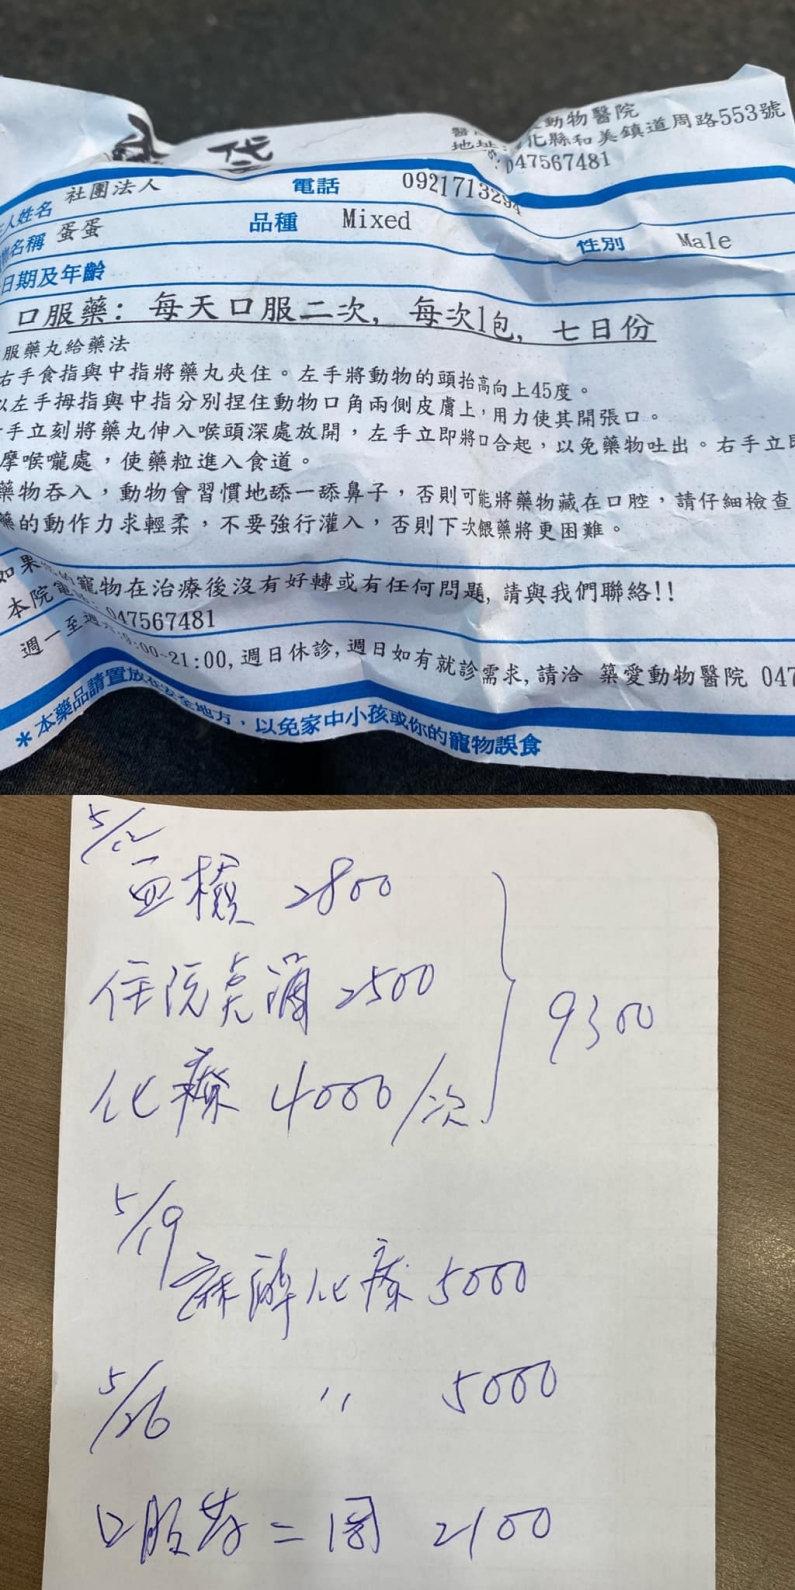 動物醫院
化縣和美鎮道周路553號
047567481
人姓名 社團法人 電話 0921713294
名稱 蛋蛋 品種 Mixed 性別 Male
日期及年齡
口服藥: 每天口服二次, 每次1包, 七日份
服藥丸給藥法
右手食指與中指將藥丸夾住。左手將動物的頭抬高向上45度。
以左手拇指與中指分別捏住動物口角兩側皮膚上,用力使其開張口。
手立刻將藥丸伸入喉頭深處放開,左手立即將口合起,以免藥物吐出。右手立即
摩喉嚨處,使藥粒進入食道。
藥物吞入,動物會習慣地舔一舔鼻子,否則可能將藥物藏在口腔,請仔細檢查
藥的動作力求輕柔,不要強行灌入,否則下次餵藥將更困難。
如果 的寵物在治療後沒有好轉或有任何問題,請與我們聯絡!!
本院電 047567481
週一至週 :00-21:00,週日休診,週日如有就診需求,請洽 築愛動物醫院 047
*本藥品請置放在安全地方,以免家中小孩或你的寵物誤食
5/12
血檢 2800
住院點滴 2500
化療 4000/次
9300
5/19
麻醉化療 5000
5/26 〃 5000
口服藥二週 2100